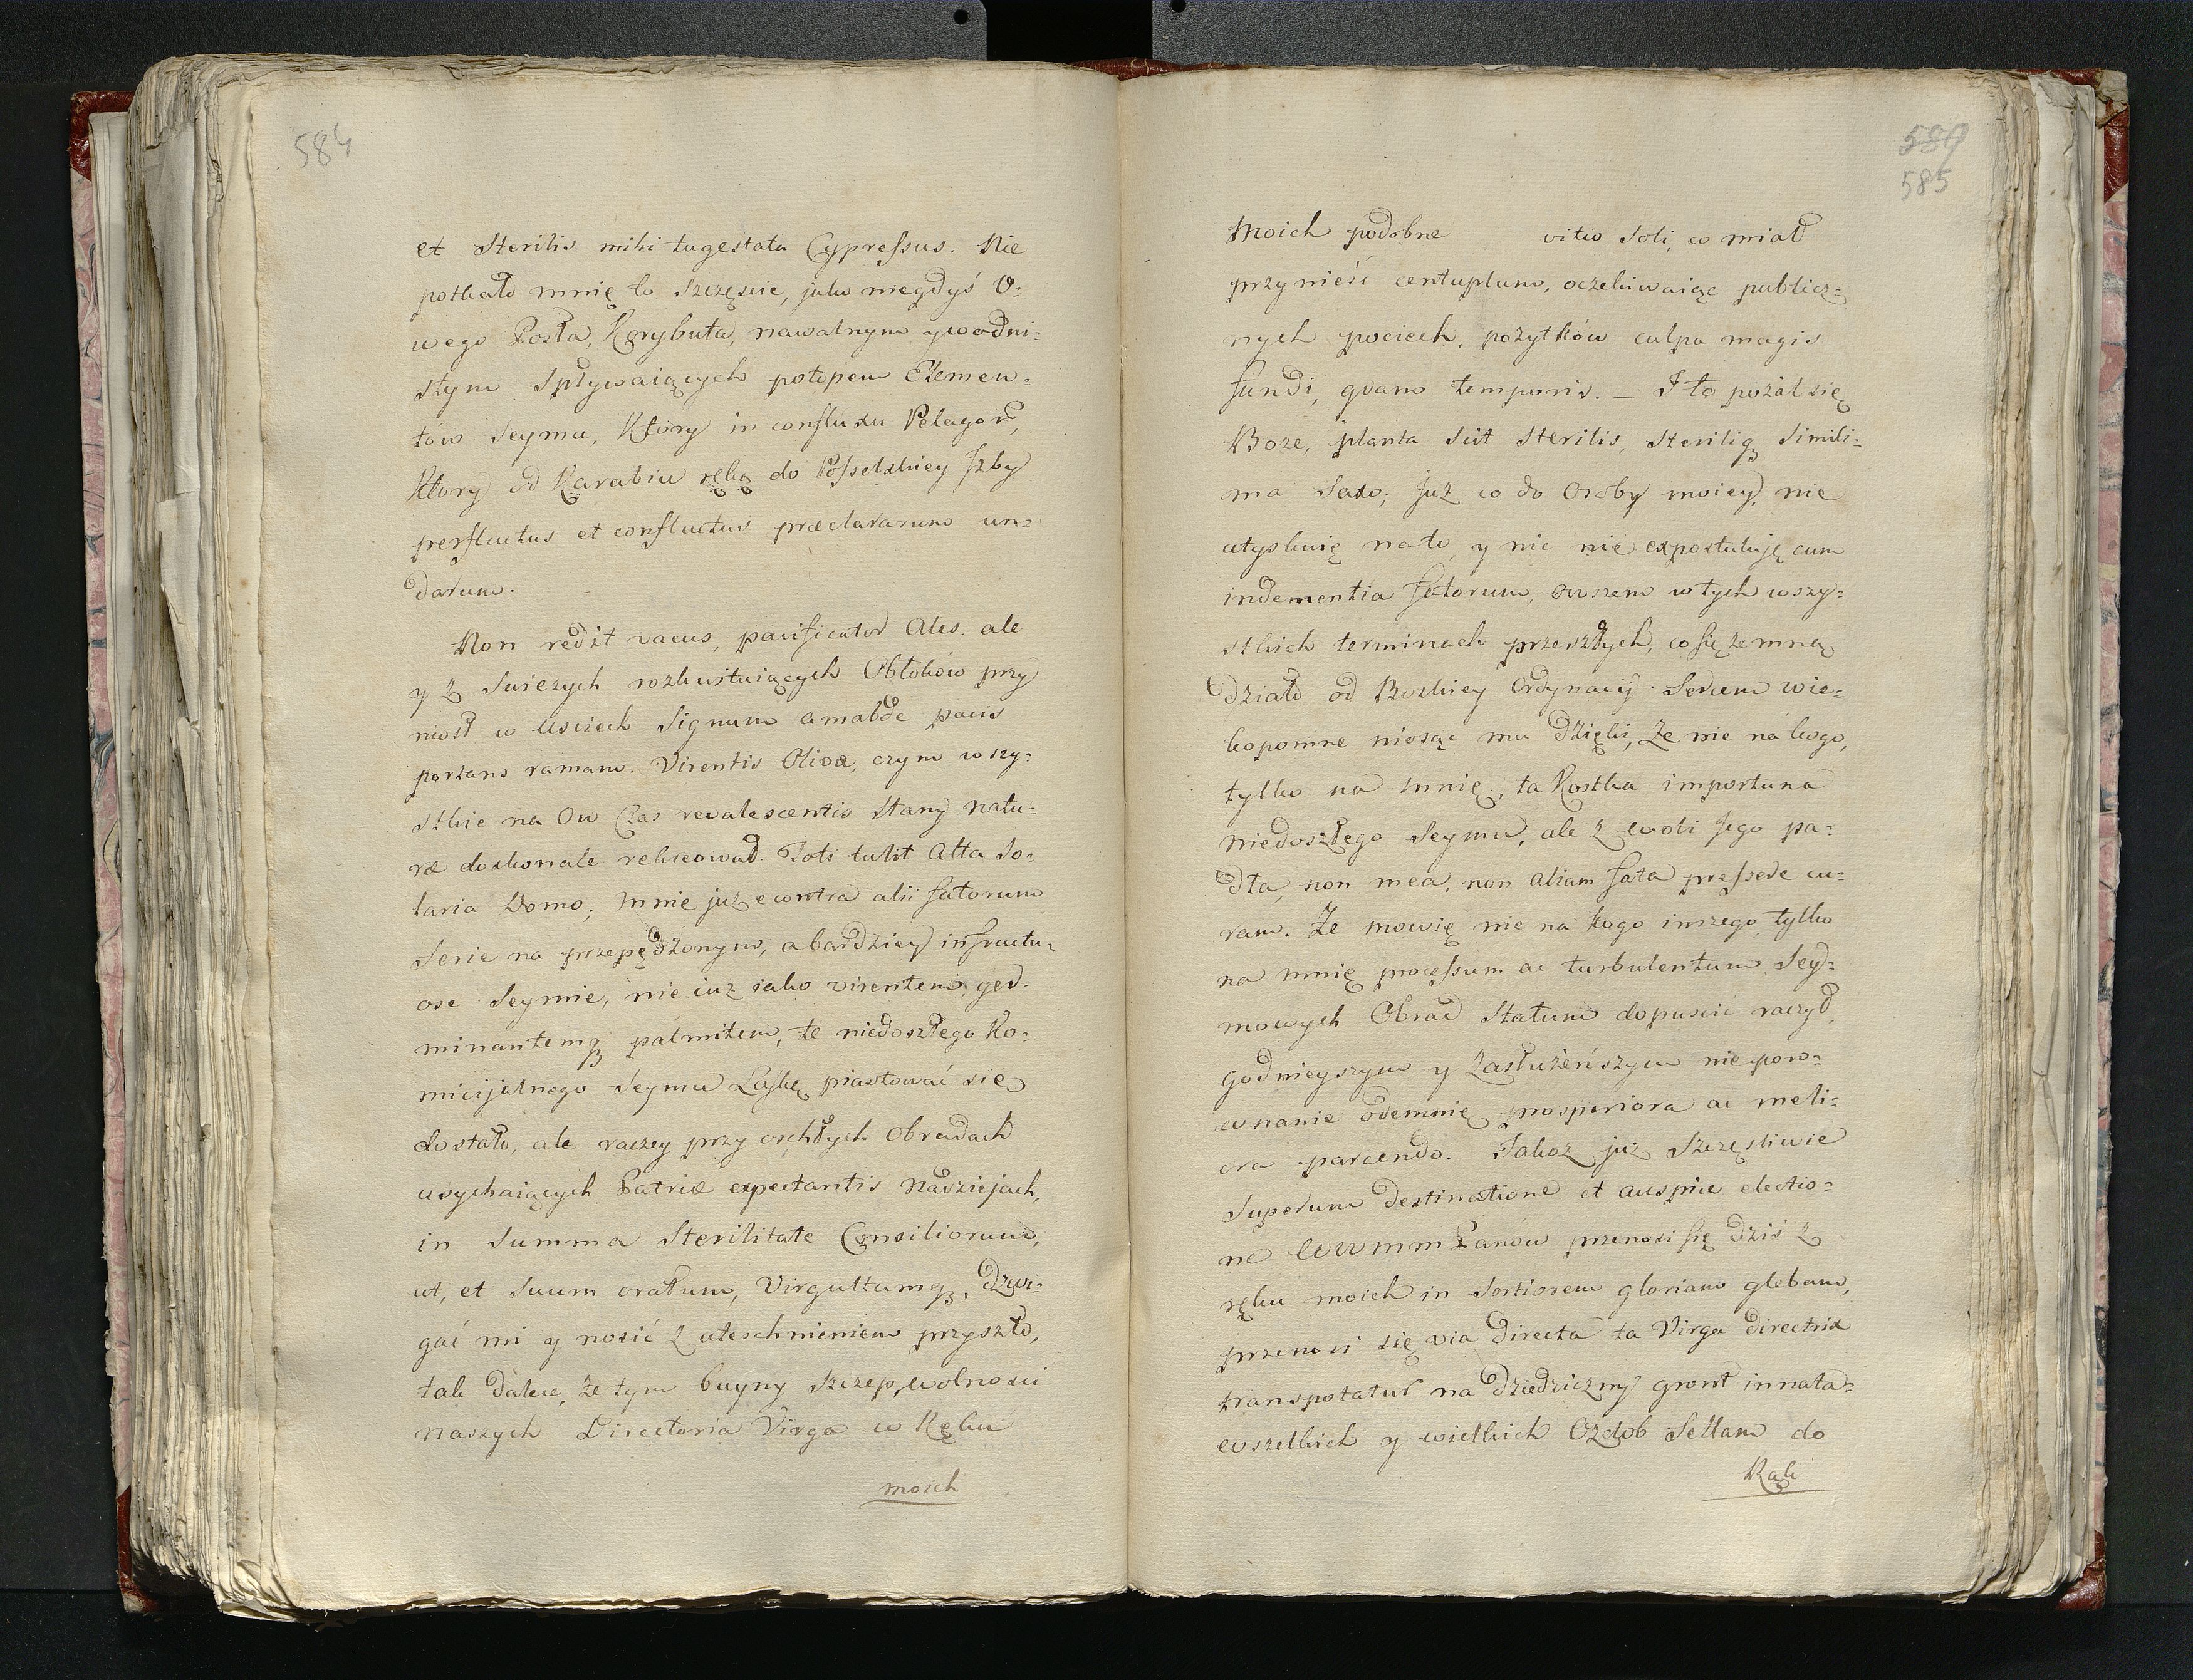 584
et Sterilis mihi tugestata Cypreſsus. Nie
potkało mnię to Szczęscie, jako niegdyś O=
wego Posła, Korybuta, nawalnym y wodni=
stym Spływaiących potopem Elemen=
tów Seymu, Ktory in confluxu Pelagor,
Ktory od Karabiu ręką do Poſselskiey Jzby
perfluctus et confluctus præclararum un=
darum.
Non redit vacus, pacificator Ales. ale
y z Swiezych rozkwitaiących Obłoków przy
niosł w Usciech Signum amabile pacis
portans ramam. Virentis Olivæ, czym wszy=
stkie na Ow Czas revalescentis Stany natu=
ræ doskonale rekreował. Toti tulit Atta So=
laria Domo; mnie już e contra alii fatorum
Serie na przepędzonym, a bardziey infructu=
ose Seymie, nie iuz iako virentem, ger=
minantemqȝ palmitem, te niedoszłego Ko=
micijalnego Seymu Laſkę piastować się
dostało, ale raczey przy oschłych Obradach
usychaiących Patriæ expectantis Nadziejach,
in Summa Sterilitate Consiliorum,
ut, et Suum oratum, Virgultumqȝ, dzwi=
gać mi y nosić z uteschnieniem przyszło,
tak dalece, że tym buyny Szczep, wolnosci
naszych Directoria Virga w Ręku
moich
589
585
Moich podobne vitio Soli, co miał
przynieść centuplum, oczekiwaiąc publicz=
nych pociech, pożytków culpa magis
fundi, quam temporis. _ I to pożal się
Boze, planta Sit Sterilis, Steriliqȝ Simili=
ma Saxo; Już co do Osoby moiey, nie
utyskuię na to y nic nie expostuluję cum
indementia fatorum, owszem w tych wszy=
stkich terminach przeszłych, co się ze mną
działo od Boskiey Ordynacij. Sercem wie=
kopomne niosąc mu dzięki, Że nie na kogo,
tylko na mnię, ta Kostka importuna
niedoszłego Seymu, ale z woli Jego pa=
dła, non mea, non aliam fata preſsere cu=
ram. Ze mowię nie na kogo inszego, tylko
na mnię proceſsum ac turbulentum Sey=
mowych Obrad Statum dopuscić raczył,
godnieyszym y Zasłużeńszym nie poro=
wnanie odemnię prosperiora ac meli=
ora parcendo. Jakoz już Szczęsliwie
Superum destinatione et auspice electio=
ne WWMM Panow przenosi się dziś z
ręku moich in Sortiorem gloriam glebam,
przenosi się via directa ta Virga directrix
transpotatur na dziedziczny gront innata=
wszelkich y wielkich Ozdob Sellam do
Rąk